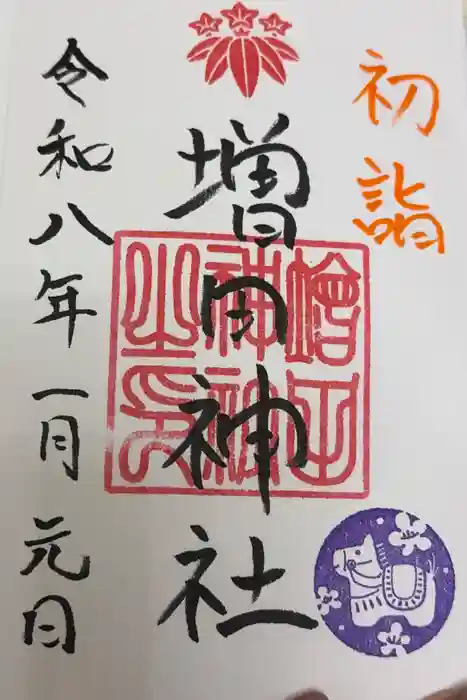 初詣
増田神社
令和八年一月元日